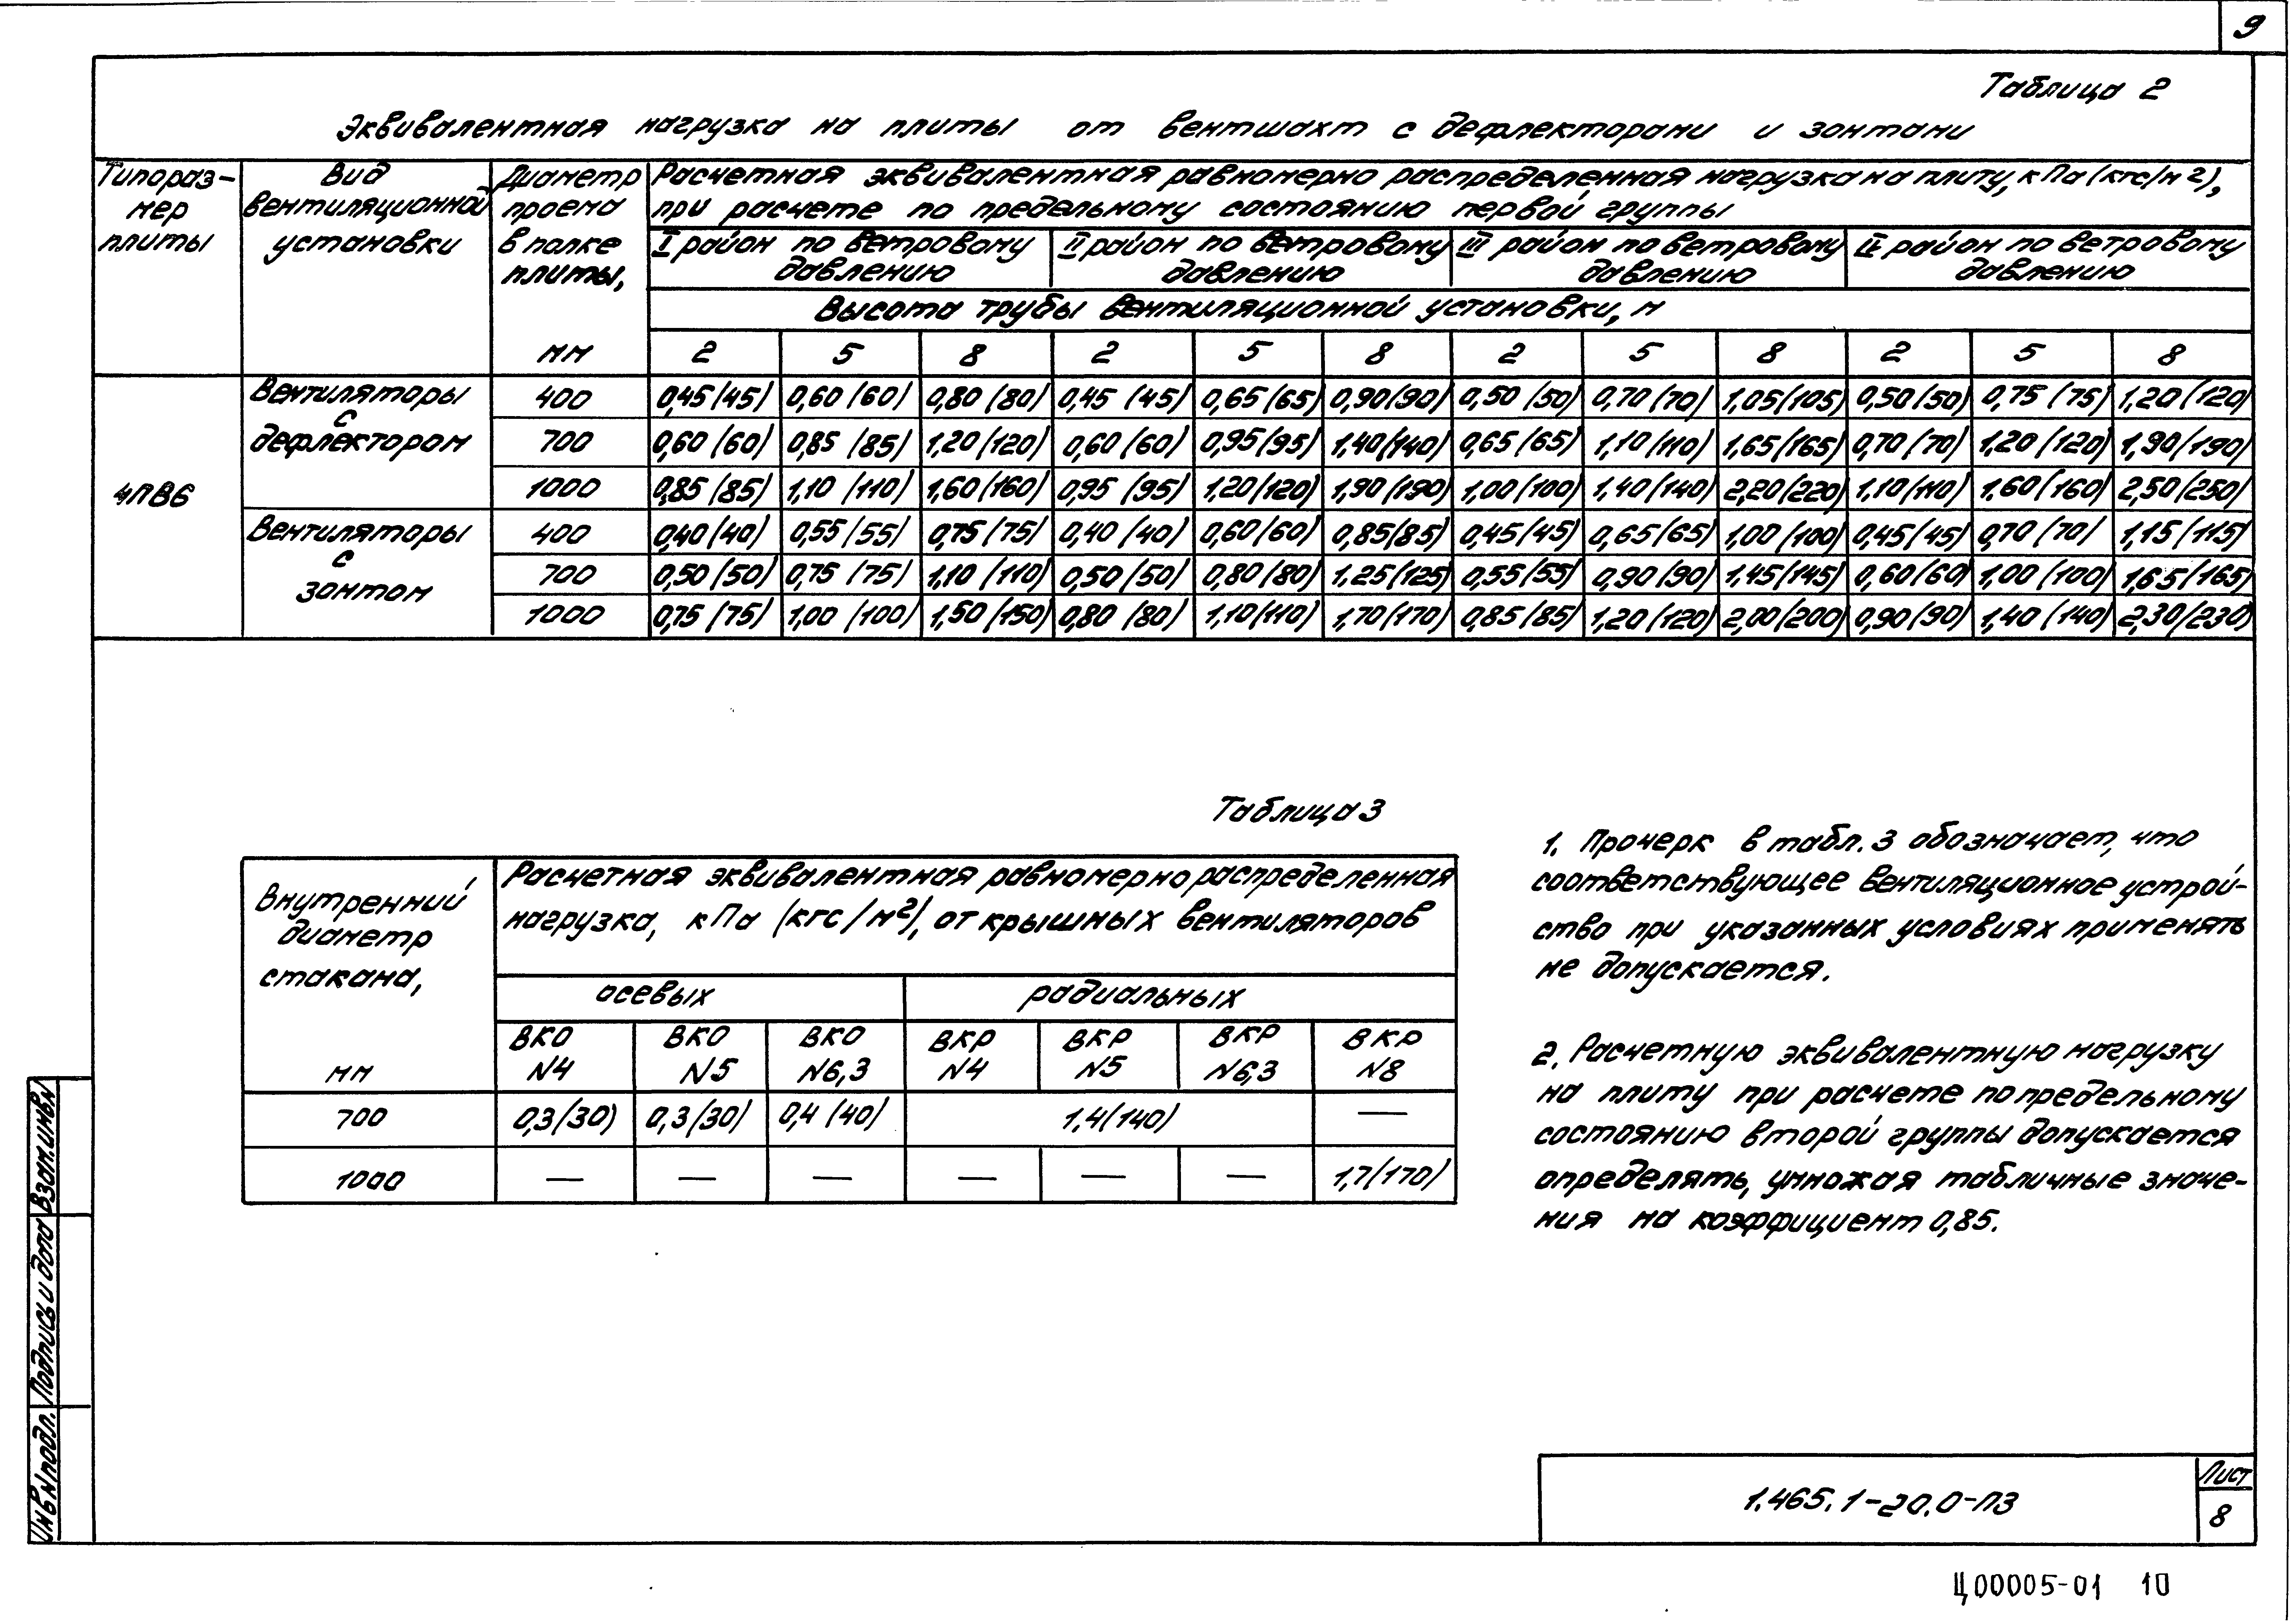 9
Таблица 2
Эквивалентная нагрузка на плиты от вентшахт с дефлекторами и зонтами
Типораз-
мер
плиты
Вид
вентиляционной
установки
Диаметр
проема
в полке
плиты,
мм
Расчетная эквивалентная равномерно распределенная нагрузка на плиту, кПа (кгс/м2),
при расчете по предельному состоянию первой группы
I район по ветровому
давлению
II район по ветровому
давлению
III район по ветровому
давлению
IV район по ветровому
давлению
Высота трубы вентиляционной установки, м
2 5 8 2 5 8 2 5 8 2 5 8
4ПВ6
Вентиляторы
с
дефлектором
400 0,45 (45) 0,60 (60) 0,80 (80) 0,45 (45) 0,65 (65) 0,90 (90) 0,50 (50) 0,70 (70) 1,05 (105) 0,50 (50) 0,75 (75) 1,20 (120)
700 0,60 (60) 0,85 (85) 1,20 (120) 0,60 (60) 0,95 (95) 1,40 (140) 0,65 (65) 1,10 (110) 1,65 (165) 0,70 (70) 1,20 (120) 1,90 (190)
1000 0,85 (85) 1,10 (110) 1,60 (160) 0,95 (95) 1,20 (120) 1,90 (190) 1,00 (100) 1,40 (140) 2,20 (220) 1,10 (110) 1,60 (160) 2,50 (250)
Вентиляторы
с
зонтом
400 0,40 (40) 0,55 (55) 0,75 (75) 0,40 (40) 0,60 (60) 0,85 (85) 0,45 (45) 0,65 (65) 1,00 (100) 0,45 (45) 0,70 (70) 1,15 (115)
700 0,50 (50) 0,75 (75) 1,10 (110) 0,50 (50) 0,80 (80) 1,25 (125) 0,55 (55) 0,90 (90) 1,45 (145) 0,60 (60) 1,00 (100) 1,65 (165)
1000 0,75 (75) 1,00 (100) 1,50 (150) 0,80 (80) 1,10 (110) 1,70 (170) 0,85 (85) 1,20 (120) 2,00 (200) 0,90 (90) 1,40 (140) 2,30 (230)
Таблица 3
Внутренний
диаметр
стакана,
мм
Расчетная эквивалентная равномерно распределенная
нагрузка, кПа (кгс/м²), от крышных вентиляторов
осевых радиальных
ВКО
N4
ВКО
N5
ВКО
N6,3
ВКР
N4
ВКР
N5
ВКР
N6,3
ВКР
N8
700 0,3 (30) 0,3 (30) 0,4 (40) 1,4 (140) —
1000 — — — — — — 1,7 (170)
1. Прочерк в табл. 3 обозначает, что
соответствующее вентиляционное устрой-
ство при указанных условиях применять
не допускается.
2. Расчетную эквивалентную нагрузку
на плиту при расчете по предельному
состоянию второй группы допускается
определять, умножая табличные значе-
ния на коэффициент 0,85.
Взам. инв. N
Подпись и дата
Инв N подл.
1.465.1-20.0-ПЗ
Лист
8
Ц00005-01 10